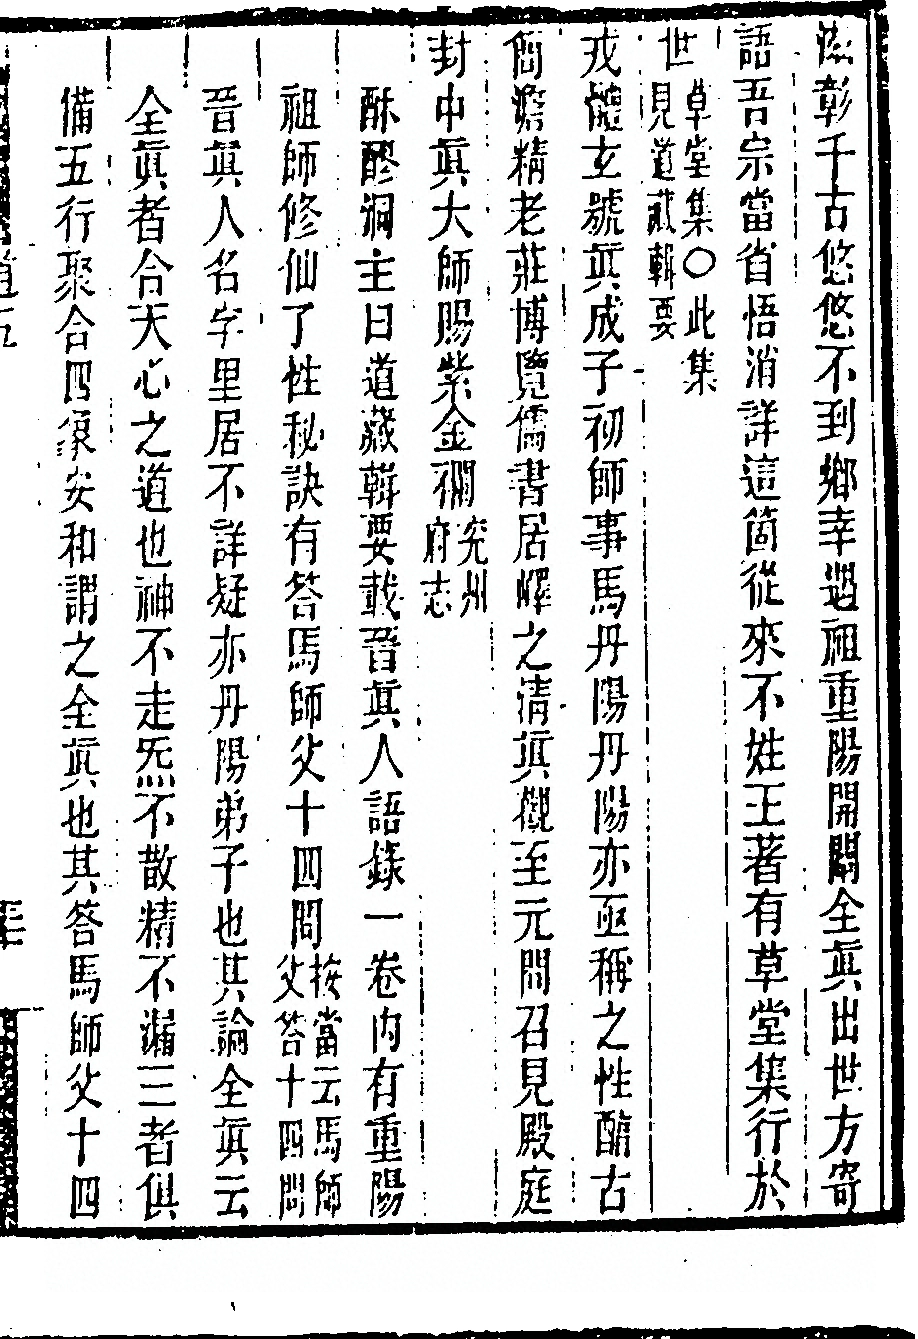 彰千古悠悠不到鄉幸遇祖重陽開闡全眞出世方寄
語吾宗當省悟消詳這箇從來不姓王著有草堂集行於
世草堂集〇此集見道藏輯要
戎體玄號眞成子初師事馬丹陽丹陽亦亟稱之性酷古
簡澹精老莊博覽儒書居嶧之清眞觀至元間召見殿庭
封中眞大師賜紫金襴兖州府志
酥醪洞主曰道藏輯要載晉眞人語錄一卷內有重陽
祖師修仙了性秘訣有答馬師父十四問按當云馬師父答十四問
晉眞人名字里居不詳疑亦丹陽弟子也其論全眞云
全眞者合天心之道也神不走炁不散精不漏三者俱
備五行聚合四象安和謂之全眞也其答馬師父十四
道五